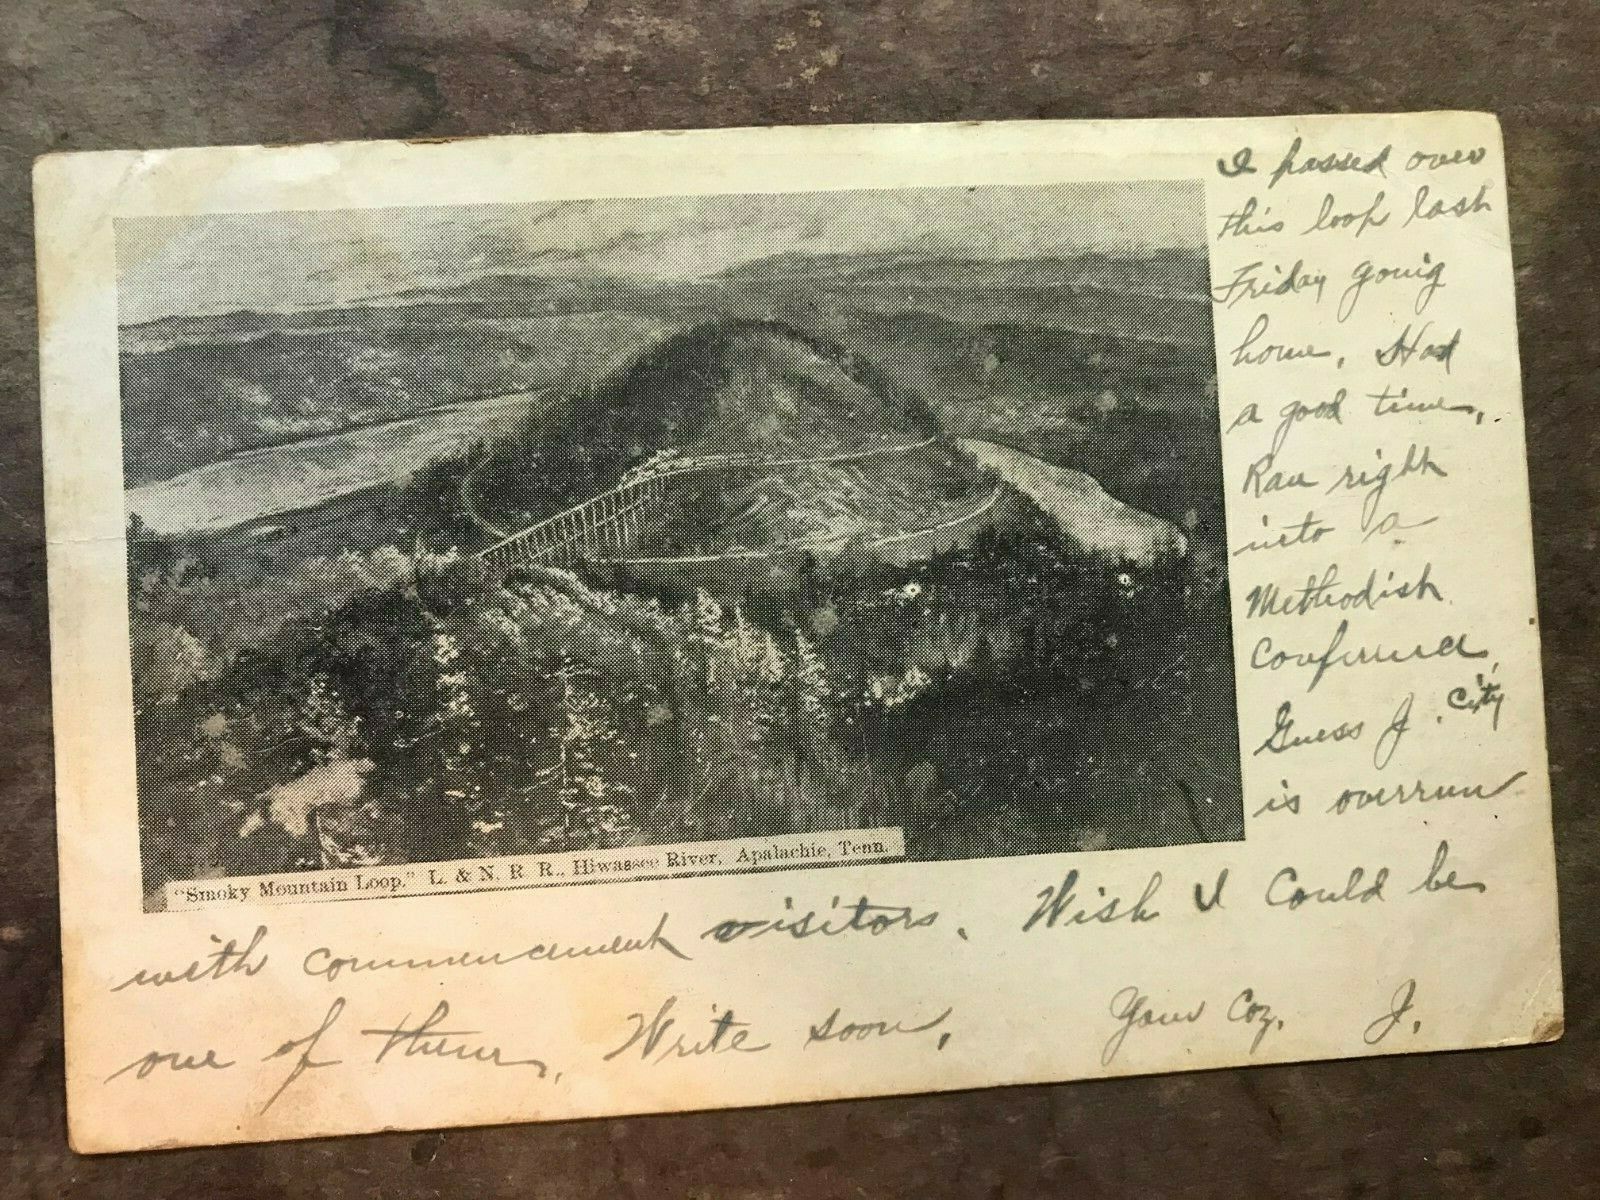 I passed over
this loop last
Friday going
home. Had
a good time,
Ran right
into a
Methodist
Conference,
Guess J. City
is overrun
with commencement visitors. Wish I Could be
one of them. Write soon, Your Coz. J.
"Smoky Mountain Loop." L. & N. R. R., Hiwassee River, Apalachie, Tenn.